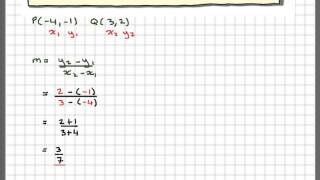 P(-4,-1) Q(3,2)
x₁ y₁ x₂ y₂
m = y₂-y₁ / x₂-x₁
= 2-(-1) / 3-(-4)
= 2+1 / 3+4
= 3/7